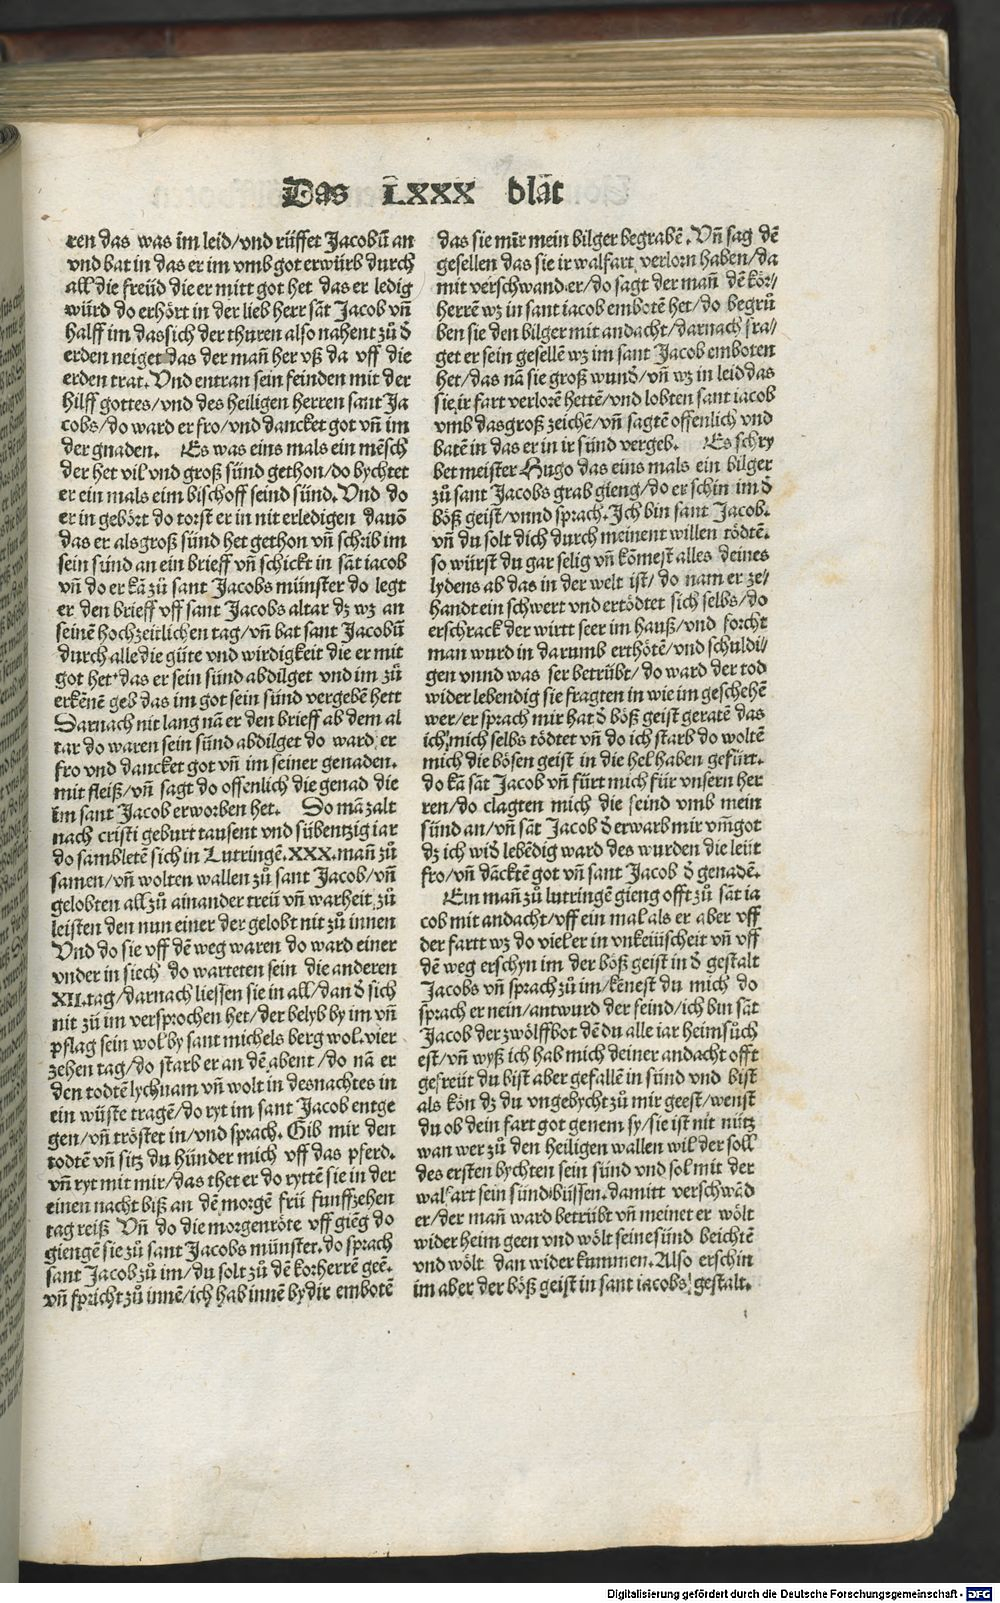 Das LXXX blat
ren das was im leid/vnd rüffet Jacobū an
vnd bat in das er im vmb got erwürb durch
all die freüd die er mitt got het das er ledig
würd do erhört in der lieb herr sāt Jacob vn̄
halff im dassich der thuren also nahent zů d̄
erden neiget das der man̄ her vß da vff die
erden trat. Vnd entran sein feinden mit der
hilff gottes/vnd des heiligen herren sant Ja
cobs/do ward er fro/vnd dancket got vn̄ im
der gnaden. Es was eins mals ein mēsch
der het vil vnd groß sünd gethon/do bychtet
er ein mals eim bischoff seind sünd. Vnd do
er in gebört do torst er in nit erledigen dauō
das er alsgroß sünd het gethon vn̄ schrib im
sein sünd an ein brieff vn̄ schickt in sāt iacob
vn̄ do er kā zü sant Jacobs münster do legt
er den brieff vff sant Jacobs altar dz wz an
seinē hochzeitlichen tag/vn̄ bat sant Jacobū
durch alle die güte vnd wirdigkeit die er mit
got het das er sein sünd abdilget vnd im zů
erkēnē geb das im got sein sünd vergebē hett
Darnach nit lang nā er den brieff ab dem al
tar do waren sein sünd abdilget do ward er
fro vnd dancket got vn̄ im seiner genaden.
mit fleiß/vn̄ sagt do offenlich die genad die
im sant Jacob erworben het. Do mā zalt
nach cristi geburt tausent vnd sübentzig iar
do sambletē sich in Lutringē. XXX. man̄ zů
samen/vn̄ wolten wallen zů sant Jacob/vn̄
gelobten all zů ainander treü vn̄ warheit zů
leisten den nun einer der gelobt nit zů innen
Vnd do sie vff dē weg waren do ward einer
vnder in siech do warteten sein die anderen
XII. tag/darnach liessen sie in all/dan d̄ sich
nit zů im versprochen het/der belyb by im vn̄
pflag sein wol by sant michels berg wol. vier
zehen tag/do starb er an dē abent/do nā er
den todtē lychnam vn̄ wolt in desnachtes in
ein wüste tragē/do ryt im sant Jacob entge
gen/vn̄ tröstet in/vnd sprach. Gib mir den
todtē vn̄ sitz du hünder mich vff das pferd.
vn̄ ryt mit mir/das thet er do ryttē sie in der
einen nacht biß an dē morgē frü funffzehen
tag reiß Vn̄ do die morgenröte vff giēg do
giengē sie zů sant Jacobs münster. do sprach
sant Jacob zů im/du solt zů dē korherrē geē.
vn̄ spricht zů innē/ich hab innē by dir embotē
das sie mir mein bilger begrabē. Vn̄ sag dē
gesellen das sie ir walfart verlorn haben/da
mit verschwand er/do sagt der man̄ dē kör/
herrē wz in sant iacob embotē het/do begrü
ben sie den bilger mit andacht/darnach fra/
get er sein gesellē wz im sant Jacob emboten
het/das nā sie groß wund̄/vn̄ wz in leid das
sie ir fart verlorē hettē/vnd lobten sant iacob
vmb dasgroß zeichē/vn̄ sagtē offenlich vnd
batē in das er in ir sünd vergeb. Es schry
bet meister Hugo das eins mals ein bilger
zů sant Jacobs grab gieng/do er schin im d̄
böß geist/vnnd sprach. Ich bin sant Jacob.
vn̄ du solt dich durch meinent willen tödtē.
so würst du gar selig vn̄ kōmest alles deines
lydens ab das in der welt ist/do nam er ze/
handt ein schwert vnd ertödtet sich selbs/do
erschrack der wirtt seer im hauß/vnd forcht
man wurd in darumb erthötē/vnd schuldi/
gen vnnd was ser betrübt/do ward der tod
wider lebendig sie fragten in wie im geschehē
wer/er sprach mir hat d̄ böß geist geratē das
ich mich selbs tödtet vn̄ do ich starb do woltē
mich die bösen geist in die hel haben gefürt.
do kā sāt Jacob vn̄ fürt mich für vnsern her
ren/do clagten mich die feind vmb mein
sünd an/vn̄ sāt Jacob d̄ erwarb mir vm̄got
dz ich wid̄ lebēdig ward des wurden die leüt
fro/vn̄ dācktē got vn̄ sant Jacob d̄ genadē.
Ein man̄ zů lutringē gieng offt zů sāt ia
cob mit andacht/vff ein mal als er aber vff
der fartt wz do viel er in vnkeüscheit vn̄ vff
dē weg erschyn im der böß geist in d̄ gestalt
Jacobs vn̄ sprach zů im/kēnest du mich do
sprach er nein/antwurd der feind/ich bin sāt
Jacob der zwölffbot dē du alle iar heimsůch
est/vn̄ wyß ich hab mich deiner andacht offt
gefreüt du bist aber gefallē in sünd vnd bist
als kön dz du vngebycht zů mir geest/wenst
du ob dein fart got genem sy/sie ist nit nütz
wan wer zů den heiligen wallen wil der soll
des ersten bychten sein sünd vnd sol mit der
walfart sein sünd büssen. damitt verschwād
er/der man̄ ward betrübt vn̄ meinet er wölt
wider heim geen vnd wölt seinesünd beichtē
vnd wölt dan wider kummen. Also erschin
im aber der böß geist in sant iacobs gestalt.
Digitalisierung gefördert durch die Deutsche Forschungsgemeinschaft - DFG